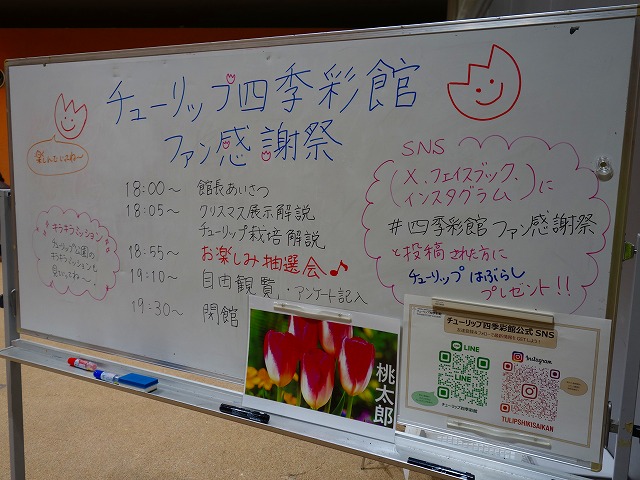 チューリップ四季彩館
ファン感謝祭
楽しんでいってね〜
18:00〜 館長あいさつ
18:05〜 クリスマス展示解説
チューリップ栽培解説
18:55〜 お楽しみ抽選会♪
19:10〜 自由観覧・アンケート記入
19:30〜 閉館
キラキラミッション
チューリップ公園の
キラキラミッションも
SNS
(X、フェイスブック、
インスタグラム)に
#四季彩館ファン感謝祭
と投稿された方に
チューリップはぶらし
プレゼント!!
桃太郎
チューリップ四季彩館公式SNS
LINE
LINE
チューリップ四季彩館
Instagram
TULIPSHIKISAIKAN